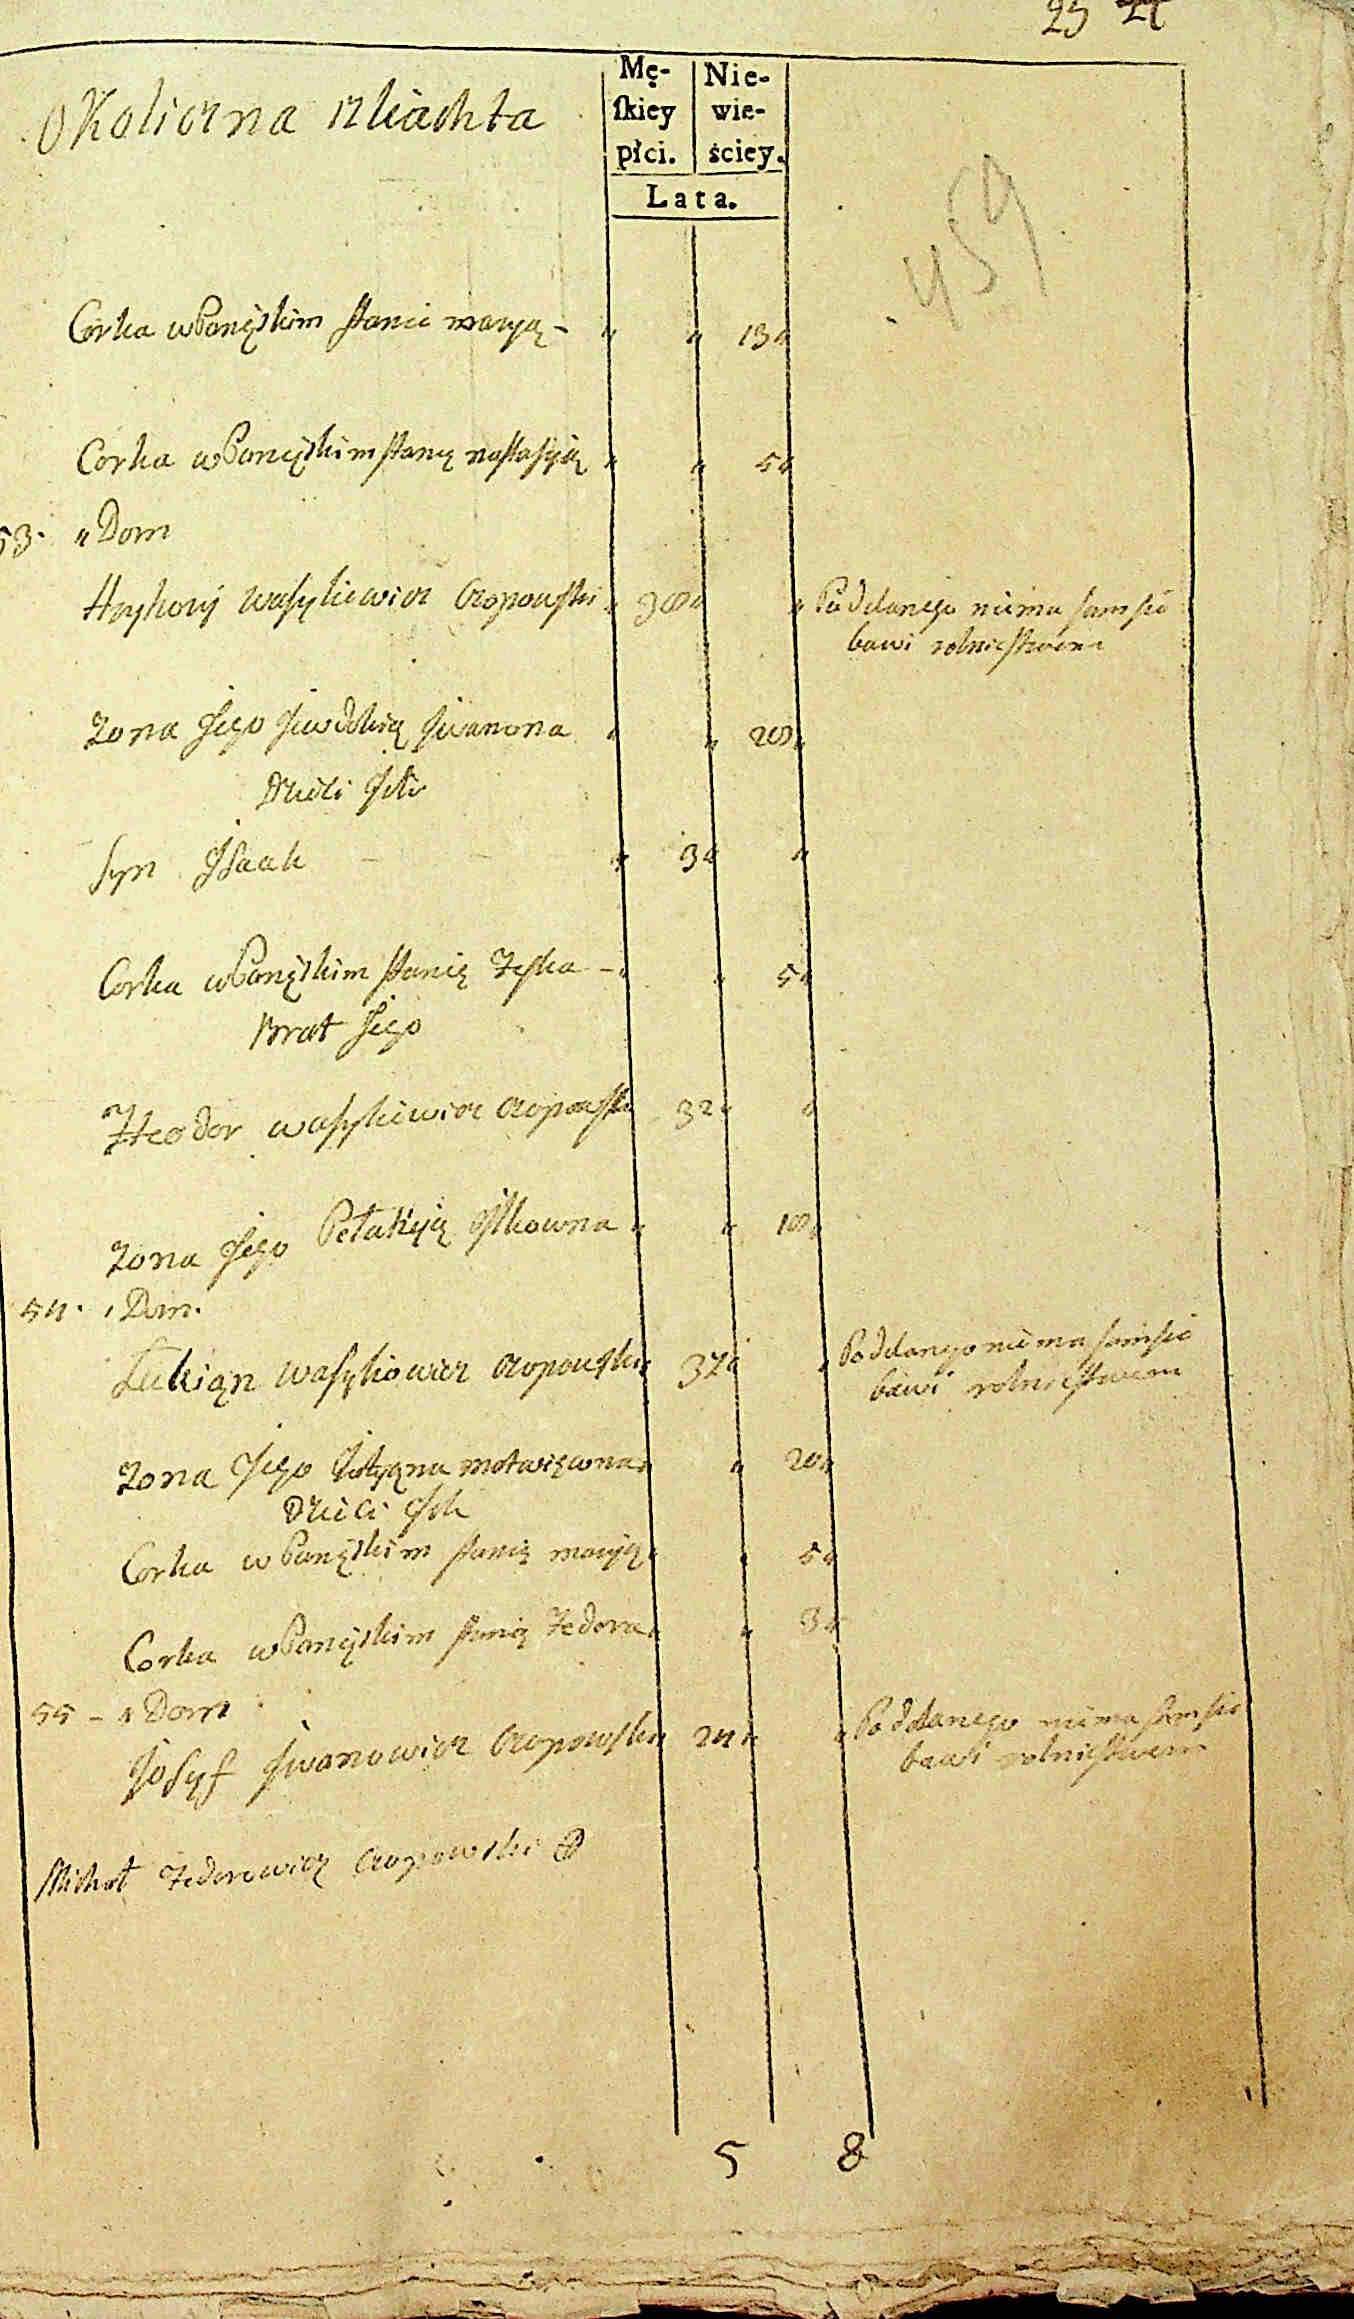 25
Okoliczna szliachta
Mę-
skiey
płci.
Nie-
wie-
ściey.
Lata.
459
Corka w Panęskim stanie maryą - " " 13 "
Corka w Panęskim stanię nastasyią " " 5 "
53. " Dom
Hryhory wasyliewicz Czopowski " 30 " " Poddanego nima sam się
bawi rolnictwem
Zona Jego Jewdokią Jwanowna " " 20 "
Dzieci Jch
Syn Jsaak " 3 " "
Corka w Panęskim stanię Teska - " " 5 "
Brat Jego
Theodor wasyliewicz Czopowski 32 " "
Zona Jego Pełahyią Jlkowna " " 18 "
54. " Dom.
Lukiąn Wasyliowicz Czopowski " 37 " " Poddanego nima sam sie
bawi rolnictwem
Zona Jego motwięwna " " 20 "
Dzieci Jch
Corka w Panęskim stanię maryią " " 5 "
Corka w Panęskim stanię Fedora " " 3 "
55 - " Dom
Josyf Jwanowicz Czopowski " 24 " " Poddanego nima sam sie
bawi rolnictwem
Michał Fedorowicz Czopowski
5 8